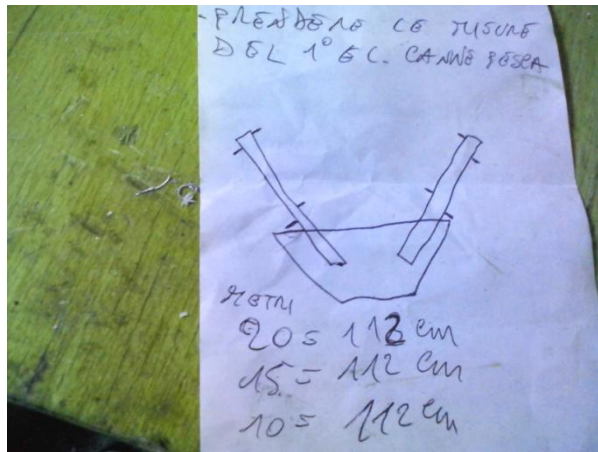 - PRENDERE LE MISURE
DEL 1° EL. CANNE PESCA
METRI
20 = 112 cm
15 = 112 cm
10 = 112 cm